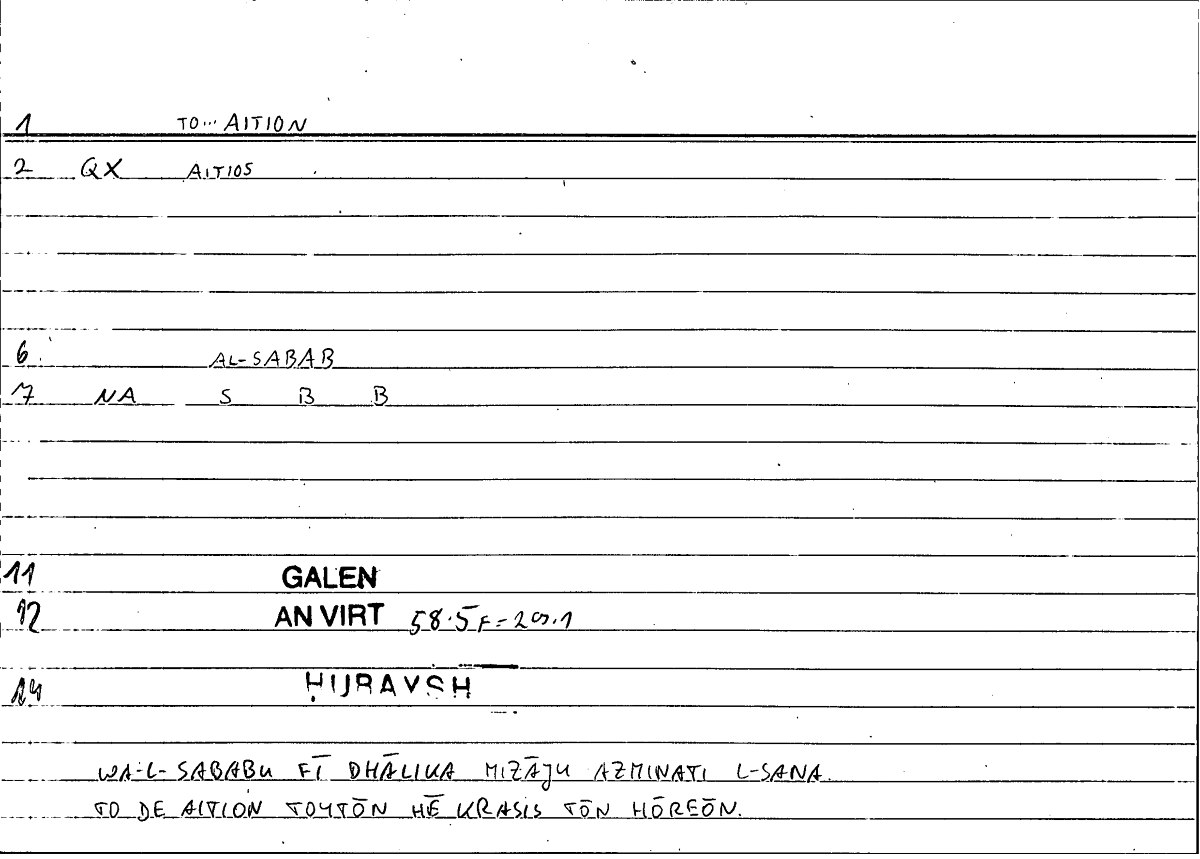 1 TO... AITION
2 QX AITIOS
6 AL-SABAB
7 NA S B B
11 GALEN
12 AN VIRT 58.5F=20.1
24 ḤUBAYSH
WA-L-SABABU FĪ DHĀLIKA MIZĀJU AZMINATI L-SANA.
TO DE AITION TOYTŌN HĒ KRASIS TŌN HŌREŌN.